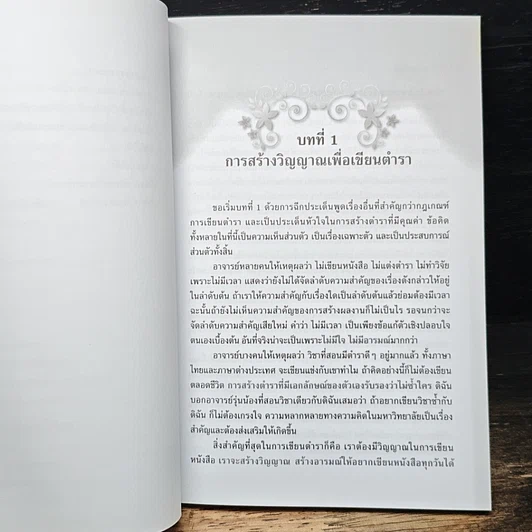 บทที่ 1
การสร้างวิญญาณเพื่อเขียนตำรา
ขอเริ่มบทที่ 1 ด้วยการฉีกประเด็นพูดเรื่องอื่นที่สำคัญกว่ากฎเกณฑ์
การเขียนตำรา และเป็นประเด็นหัวใจในการสร้างตำราที่มีคุณค่า ข้อคิด
ทั้งหลายในที่นี้เป็นความเห็นส่วนตัว เป็นเรื่องเฉพาะตัว และเป็นประสบการณ์
ส่วนตัวทั้งสิ้น
อาจารย์หลายคนให้เหตุผลว่า ไม่เขียนหนังสือ ไม่แต่งตำรา ไม่ทำวิจัย
เพราะไม่มีเวลา แสดงว่ายังไม่ได้จัดลำดับความสำคัญของเรื่องดังกล่าวให้อยู่
ในลำดับต้น ถ้าเราให้ความสำคัญกับเรื่องใดเป็นลำดับต้นแล้วย่อมต้องมีเวลา
ฉะนั้นถ้ายังไม่เห็นความสำคัญของการสร้างผลงานก็ไม่เป็นไร รอจนกว่าจะ
จัดลำดับความสำคัญเสียใหม่ คำว่า ไม่มีเวลา เป็นเพียงข้อแก้ตัวเชิงปลอบใจ
ตนเองเบื้องต้น อันที่จริงน่าจะเป็นเพราะไม่มีใจ ไม่มีอารมณ์มากกว่า
อาจารย์บางคนให้เหตุผลว่า วิชาที่สอนมีตำราดีๆ อยู่มากแล้ว ทั้งภาษา
ไทยและภาษาต่างประเทศ จะเขียนแข่งกับเขาทำไม ถ้าคิดอย่างนี้ก็ไม่ต้องเขียน
ตลอดชีวิต การสร้างตำราที่มีเอกลักษณ์ของตัวเองรับรองว่าไม่ซ้ำใคร ดิฉัน
บอกอาจารย์รุ่นน้องที่สอนวิชาเดียวกับดิฉันเสมอว่า ถ้าอยากเขียนวิชาซ้ำกับ
ดิฉัน ก็ไม่ต้องเกรงใจ ความหลากหลายทางความคิดในมหาวิทยาลัยเป็นเรื่อง
สำคัญและต้องส่งเสริมให้เกิดขึ้น
สิ่งสำคัญที่สุดในการเขียนตำราก็คือ เราต้องมีวิญญาณในการเขียน
หนังสือ เราจะสร้างวิญญาณ สร้างอารมณ์ให้อยากเขียนหนังสือทุกวันได้